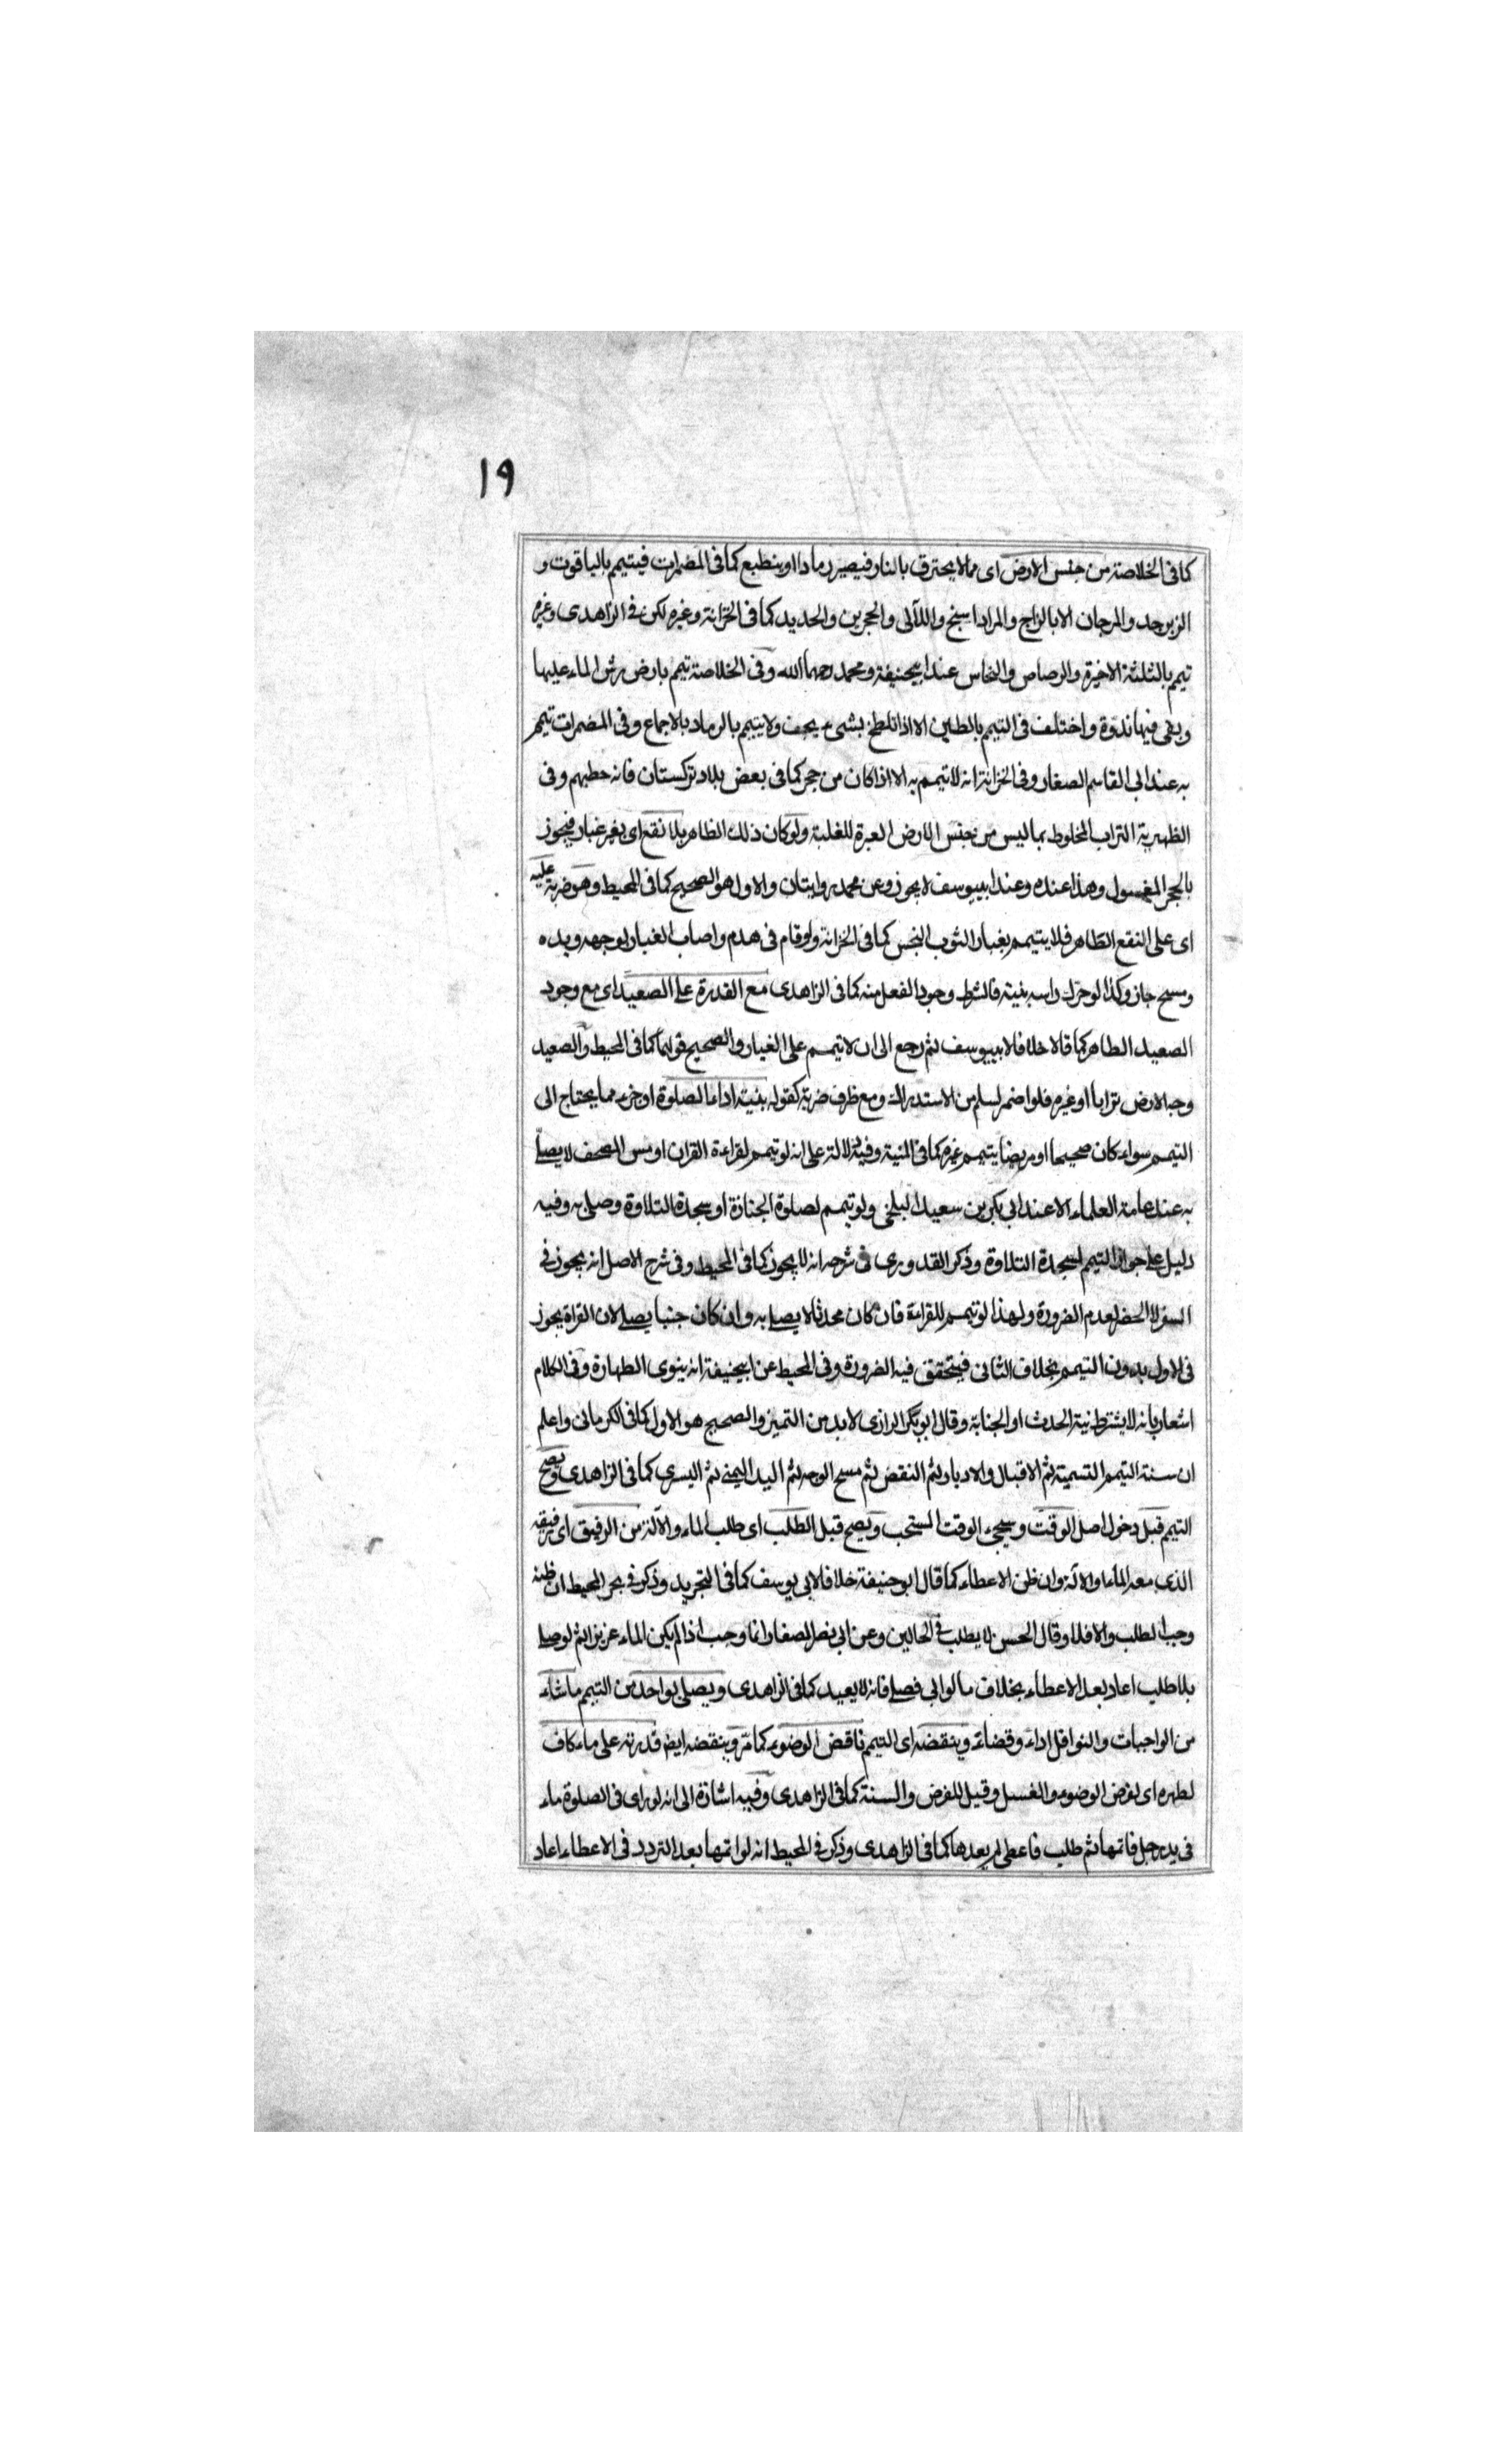 ١٩
كما فى الخلاصة من جنس الارض اى مما لا يحترق بالنار فيصير رمادا او ينطبع كما فى المضمرات فيتيمم بالياقوت و
الزبرجد والمرجان الا بالزاج والمراداسنج واللآلى والحجرين والحديد كما فى الخزانة وغيره لكن فى الزاهدى وغيره
تيمم بالثلثة الاخيرة والرصاص والنحاس عند ابيحنيفة ومحمد رحمهما الله وفى الخلاصة تيمم بارض رش الماء عليها
وبقى فيها ندوة واختلف فى التيمم بالطين الا اذا تلطخ بشىء يجف ولا يتيمم بالرماد بالاجماع وفى المضمرات تيمم
به عند ابى القاسم الصغار وفى الخزانة انه لا تيمم به الا اذا كان من حجر كما فى بعض بلاد تركستان فانه حطبهم وفى
الظهيرية التراب المخلوط بما ليس من جنس الارض العبرة للغلبة ولو كان ذلك الظاهر بلا نقع اى بغير غبار فيجوز
بالحجر المغسول وهذا عنده وعند ابييوسف لا يجوز وعن محمد روايتان والاول هو الصحيح كما فى المحيط وهو ضربة عليه
اى على النقع الطاهر فلا يتيمم بغبار الثوب النجس كما فى الخزانة ولو قام فى هدم واصاب الغبار لوجهه ويده
ومسح جاز وكذا لو حرك راسه بنية فالشرط وجود الفعل منه كما فى الزاهدى مع القدرة على الصعيد اى مع وجود
الصعيد الطاهر كما قالا خلافا لابييوسف ثم رجع الى ان لا تيمم على الغبار والصحيح قولهما كما فى المحيط والصعيد
وجه الارض ترابا او غيره فلو اضمر لسلم من الاستدراك ومع ظرف ضربة كقوله بنية اداء الصلوة او جزء مما يحتاج الى
التيمم سواء كان صحيحا او مريضا يتيمم غيره كما فى المنية وفيه دلالة على انه لو تيمم لقراءة القران او مس المصحف لا يصلى
به عند عامة العلماء الا عند ابى بكر بن سعيد البلخى ولو تيمم لصلوة الجنازة او سجدة التلاوة وصلى به وفيه
دليل على جواز التيمم لسجدة التلاوة وذكر القدورى فى شرحه انه لا يجوز كما فى المحيط وفى شرح الاصل انه يجوز فى
السفر لا الحضر لعدم الضرورة ولهذا لو تيمم للقراءة فان كان محدثا لا يصلى به وان كان جنبا يصلى لان القراة يجوز
فى الاول بدون التيمم بخلاف الثانى فيتحقق فيه الضرورة وفى المحيط عن ابيحنيفة انه ينوى الطهارة وفى الكلام
اشعار بانه لا يشترط نية الحدث او الجنابة وقال ابو بكر الرازى لا بد من التميز والصحيح هو الاول كما فى الكرمانى واعلم
ان سنة التيمم التسمية ثم الاقبال والادبار ثم النقض ثم مسح الوجه ثم اليد اليمنى ثم اليسرى كما فى الزاهدى ويصح
التيمم قبل دخول اصل الوقت وسيجىء الوقت المستحب ويصح قبل الطلب اى طلب الماء والآلة من الرفيق اى رفيقه
الذى معه الماء والآلة وان ظن الاعطاء كما قال ابو حنيفة خلافا لابى يوسف كما فى التجريد وذكر فى بحر المحيط ان ظنه
وجب الطلب والا فلا وقال الحسن لا يطلب فى الحالين وعن ابى نصر الصفار انما وجب اذا لم يكن الماء عزيزا ثم لو صلى
بلا طلب اعاد بعد الاعطاء بخلاف ما لو ابى فصلى فانه لا يعيد كما فى الزاهدى ويصلى بواحد من التيمم ما شاء
من الواجبات والنوافل اداء وقضاء وينقضه اى التيمم ناقض الوضوء كما مر وينقضه ايضا قدرته على ماء كاف
لطهره اى لفرض الوضوء والغسل وقيل للفرض والسنة كما فى الزاهدى وفيه اشارة الى انه لو راى فى الصلوة ماء
فى يد رجل فاتمها ثم طلب فاعطى لم يعدها كما فى الزاهدى وذكر فى المحيط انه لو اتمها بعد التردد فى الاعطاء اعاد